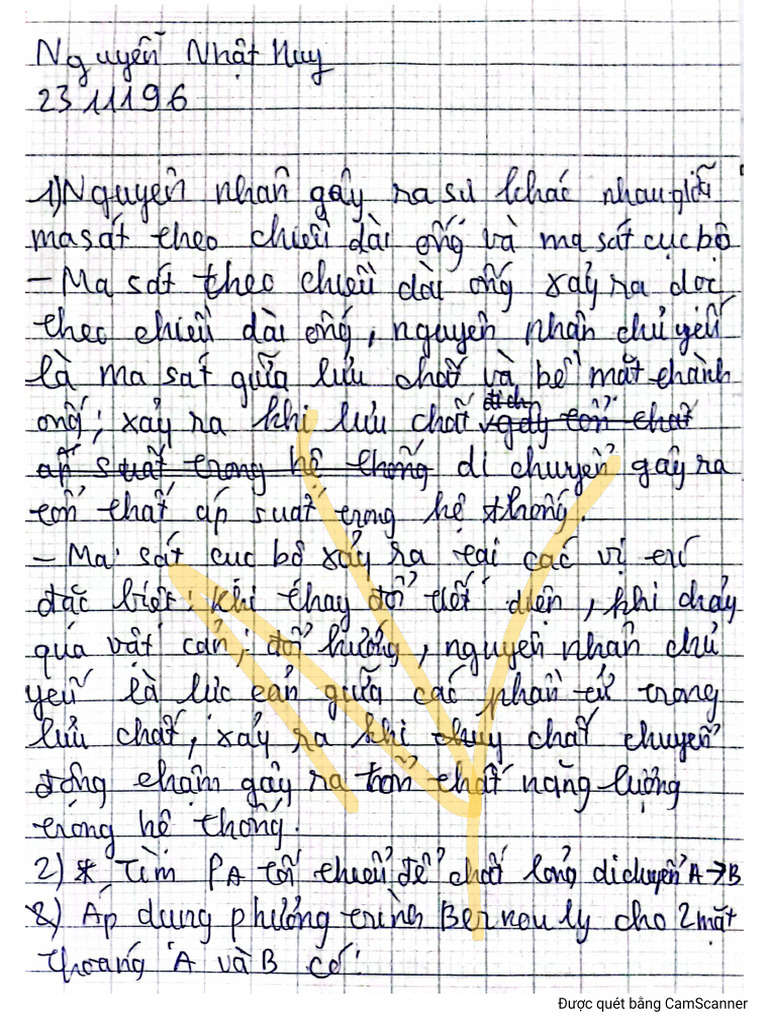 Nguyễn Nhật Huy
2311196
1) Nguyên nhân gây ra sự khác nhau giữa
ma sát theo chiều dài ống và ma sát cục bộ
– Ma sát theo chiều dài ống xảy ra dọc
theo chiều dài ống, nguyên nhân chủ yếu
là ma sát giữa lưu chất và bề mặt thành
ống; xảy ra khi lưu chất gây tổn thất
áp suất trong hệ thống di chuyển gây ra
tổn thất áp suất trong hệ thống.
– Ma sát cục bộ xảy ra tại các vị trí
đặc biệt: khi thay đổi tiết diện, khi chảy
qua vật cản; đổi hướng, nguyên nhân chủ
yếu là lực cản giữa các phần tử trong
lưu chất, xảy ra khi chất chuyển
động chậm gây ra tổn thất năng lượng
trong hệ thống.
2) * Tìm PA tối thiểu để chất lỏng di chuyển A→B
8) Áp dụng phương trình Bernouly cho 2 mặt
thoáng A và B có:
Được quét bằng CamScanner